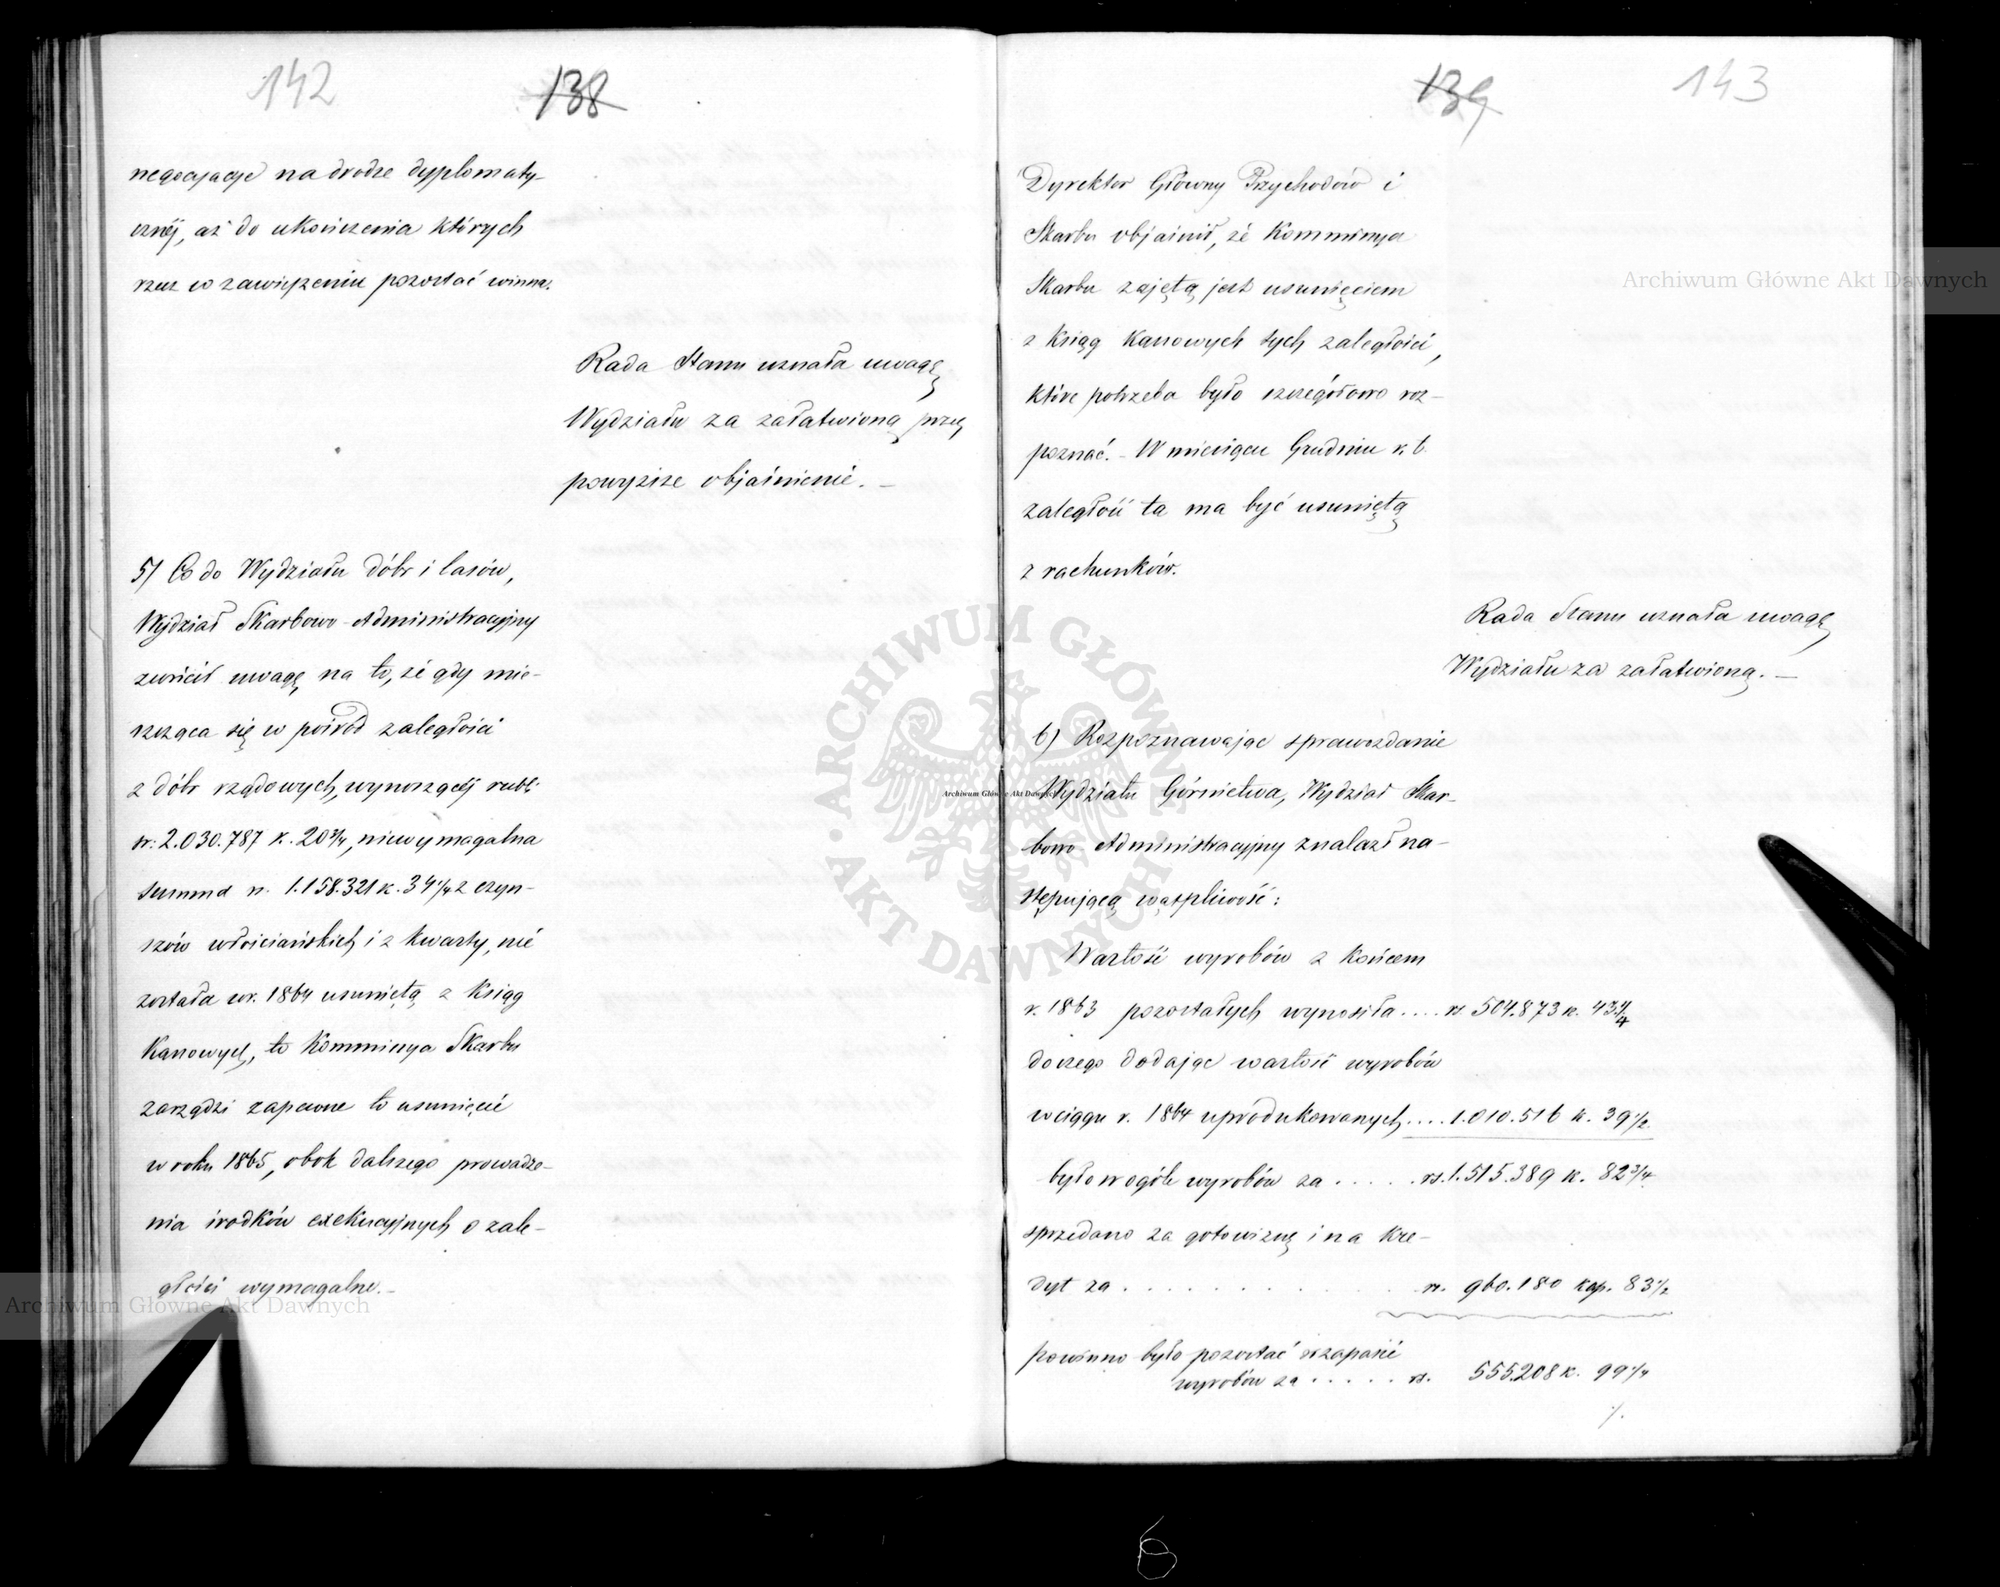 142
138
negocjacje na drodze dyplomaty-
cznéj, aż do ukończenia których
rzecz w zawieszeniu pozostać winna.
Rada Stanu uznała uwagę
Wydziału za załatwioną przez
powyższe objaśnienie. —
5) Co do Wydziału dóbr i lasów,
Wydział Skarbowo-Administracyjny
zwrócił uwagę na to, że gdy mie-
szcząca się w pośród zaległości
z dóbr rządowych, wynoszącéj rubli
sr: 2.030.787 k. 20 3/4, niewymagalna
summa rs. 1.158.321 k. 34 1/4 z czyn-
szów włościańskich i z kwarty, nie
została w r. 1864 usuniętą z ksiąg
Kassowych, to Kommissya Skarbu
zarządzi zapewne to usunięcie
w roku 1865, obok dalszego prowadze-
nia środków exekucyjnych o zale-
głości wymagalne. —
139
143
Dyrektor Główny Przychodów i
Skarbu objaśnił, że Kommissya
Skarbu zajętą jest usunięciem
z ksiąg Kassowych tych zaległości,
które potrzeba było szczegółowo roz-
poznać. – W miesiącu Grudniu r. b.
zaległość ta ma być usuniętą
z rachunków.
Rada Stanu uznała uwagę
Wydziału za załatwioną. —
6) Rozpoznawając sprawozdanie
Wydziału Górnictwa, Wydział Skar-
bowo-Administracyjny znalazł na-
stępującą wątpliwość:
Wartość wyrobów z końcem
r. 1863 pozostałych wynosiła .... rs. 504.873 k. 43 1/4
do czego dodając wartość wyrobów
w ciągu r. 1864 uprodukowanych .... 1.010.516 k. 39 1/2
było w ogóle wyrobów za ..... rs. 1.515.389 k. 82 3/4
sprzedano za gotowiznę i na kre-
dyt za ............ rs. 960.180 kop. 83 1/2
powinno było pozostać w zapasie
wyrobów za ..... rs. 555.208 k. 99 1/4
./.
Archiwum Główne Akt Dawnych
Archiwum Główne Akt Dawnych
Archiwum Główne Akt Dawnych
ARCHIWUM GŁÓWNE AKT DAWNYCH
6